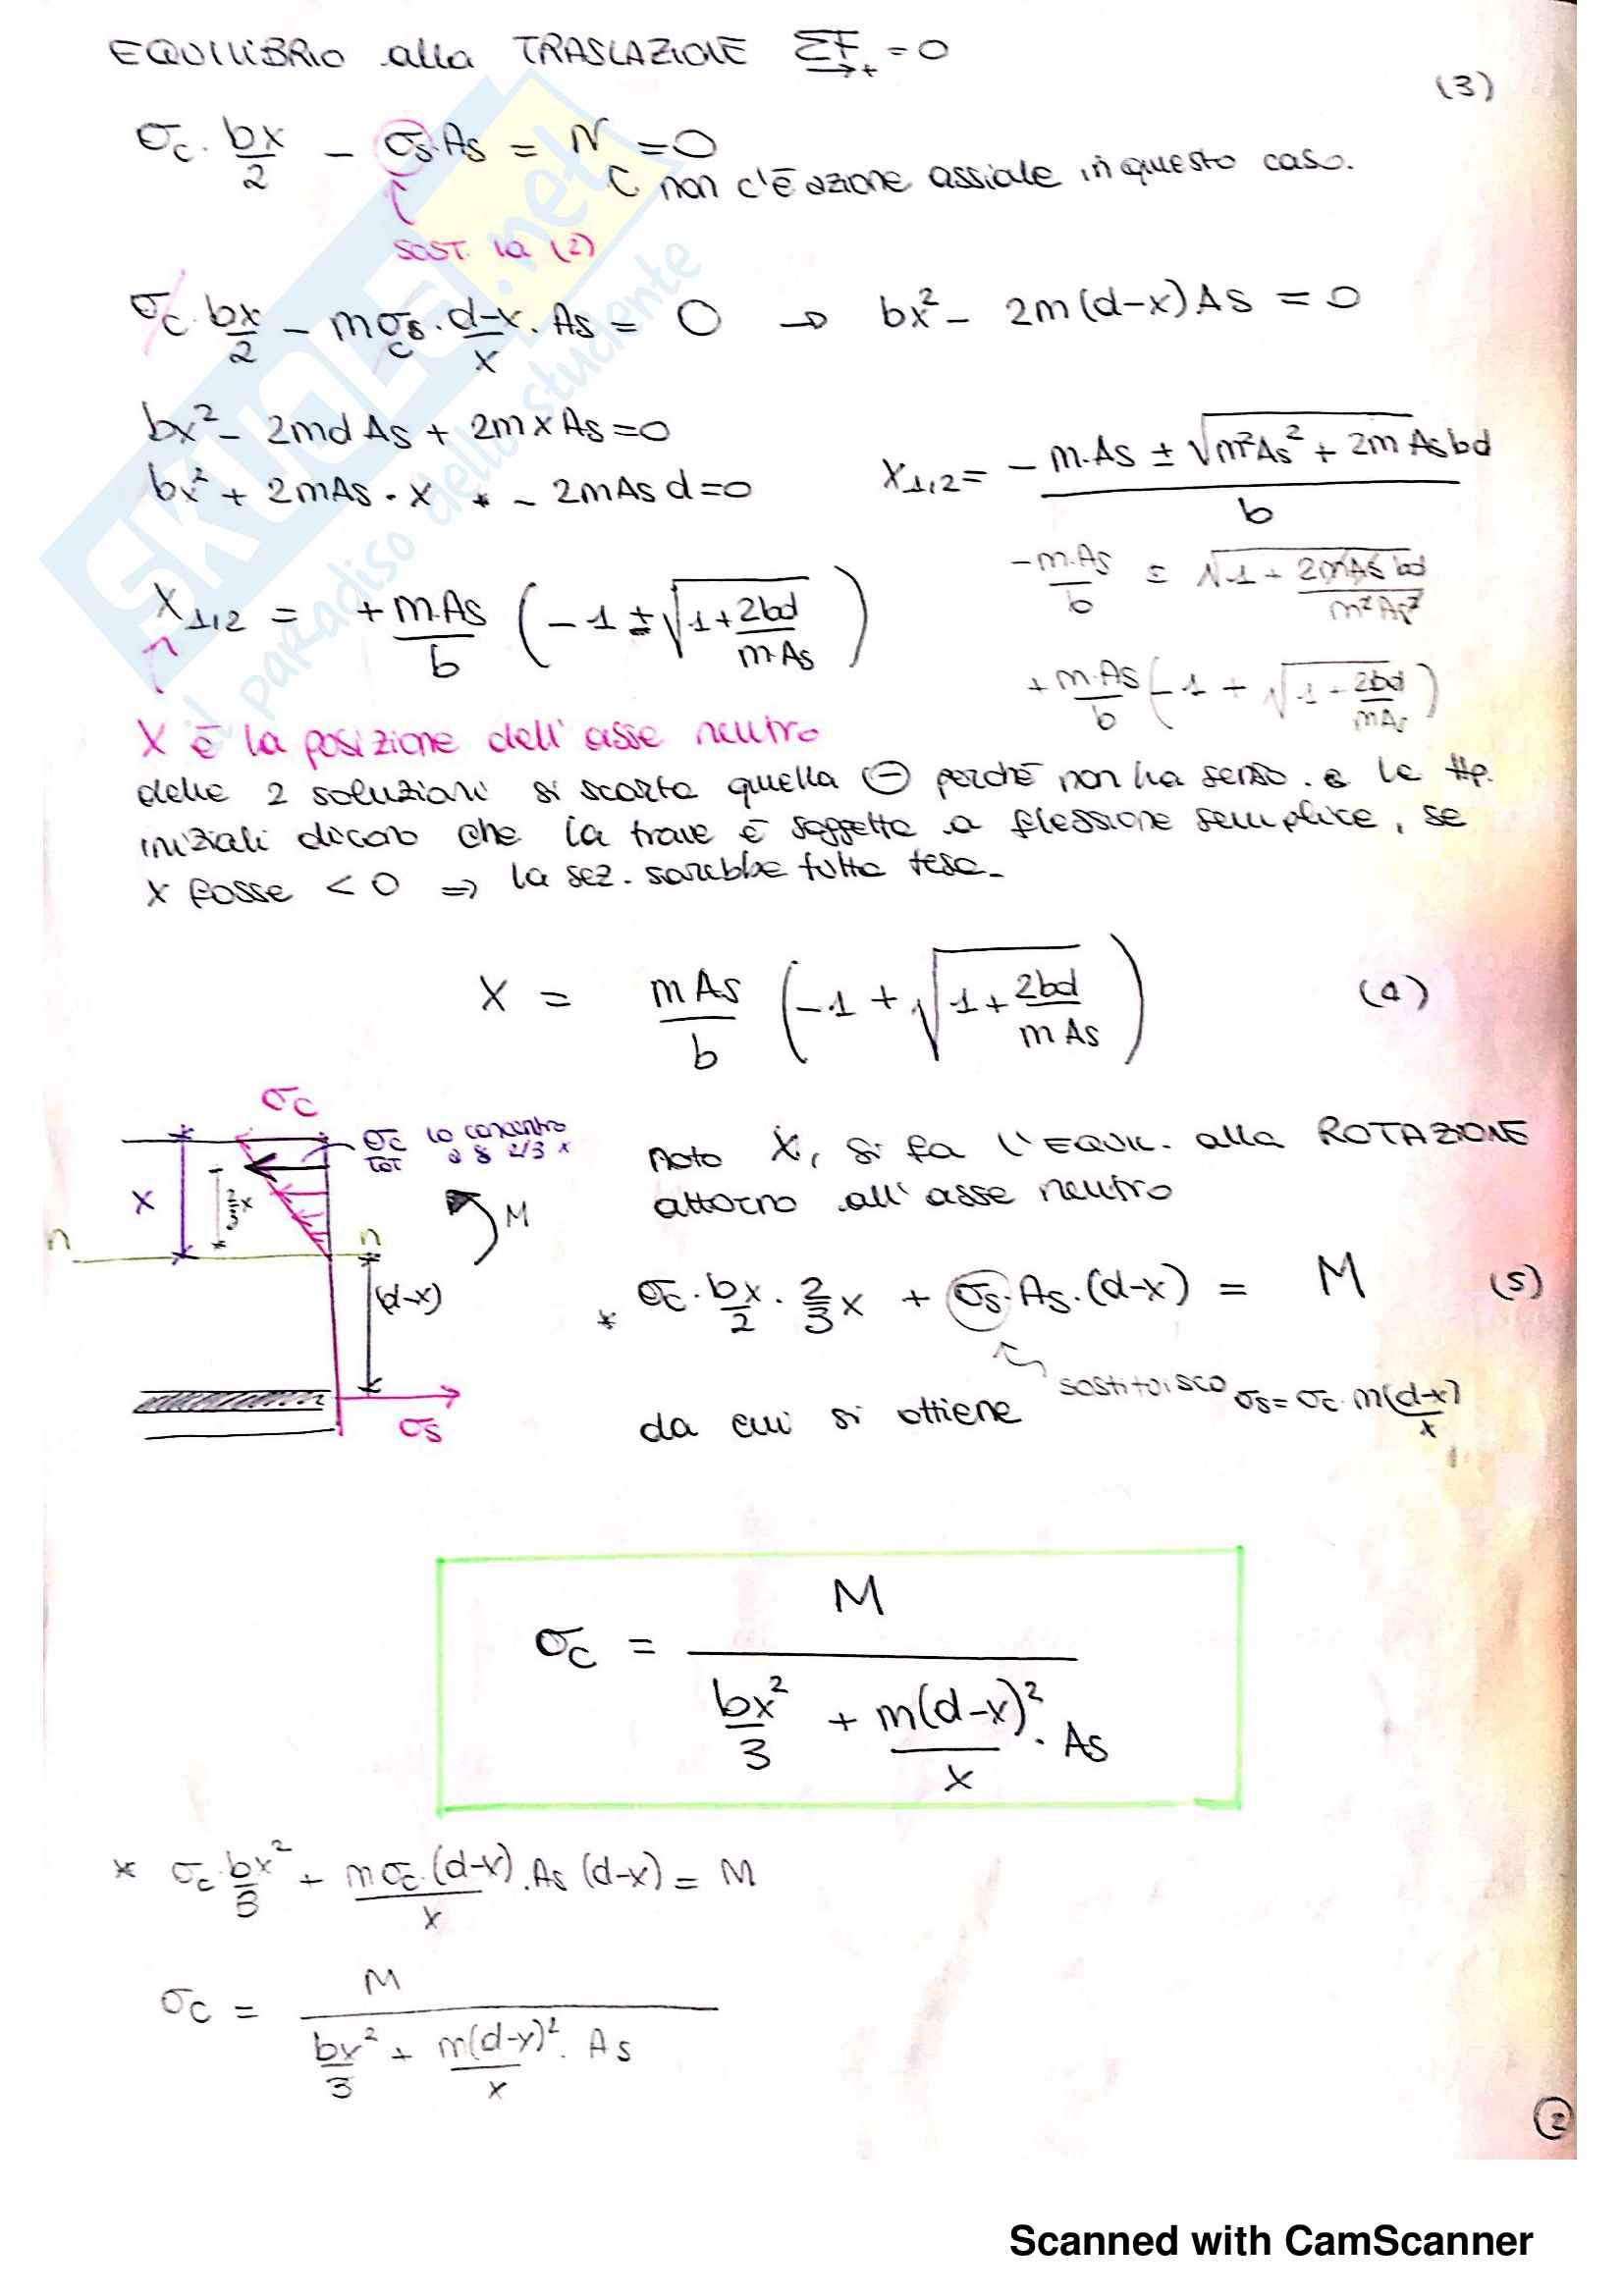 EQUILIBRIO alla TRASLAZIONE ΣF→+ = 0
(3)
σc · bx/2 − σs·As = N = 0
non c'è azione assiale in questo caso.
SOST. la (2)
σc · bx/2 − mσc · (d−x)/x · As = 0 → bx² − 2m(d−x)As = 0
bx² − 2md As + 2mx As = 0
bx² + 2mAs · x − 2mAs d = 0
x1,2 = (− m·As ± √(m²As² + 2m As bd)) / b
−m·As/b ± √(1 + 2mAs bd/m²As²)
x1,2 = + m·As/b (−1 ± √(1 + 2bd/m·As))
+ m·As/b (−1 + √(1 + 2bd/mAs))
X è la posizione dell'asse neutro
delle 2 soluzioni si scarta quella ⊖ perché non ha senso. e le Hp.
iniziali dicono che la trave è soggetta a flessione semplice, se
x fosse < 0 ⇒ la sez. sarebbe tutta tesa.
X = mAs/b (−1 + √(1 + 2bd/mAs)) (4)
σc
σc tot lo concentro a 2/3 x
X
2/3 x
M
n
n
(d−x)
σs
noto X, si fa l'EQUIL. alla ROTAZIONE
attorno all'asse neutro
* σc · bx/2 · 2/3 x + σs·As·(d−x) = M (5)
sostituisco σs = σc · m(d−x)/x
da cui si ottiene
σc = M / (bx²/3 + m(d−x)²/x · As)
* σc · bx²/3 + mσc·(d−x)/x · As (d−x) = M
σc = M / (bx²/3 + m(d−x)²/x · As)
2
SKUOLA.net
il paradiso dello studente
Scanned with CamScanner